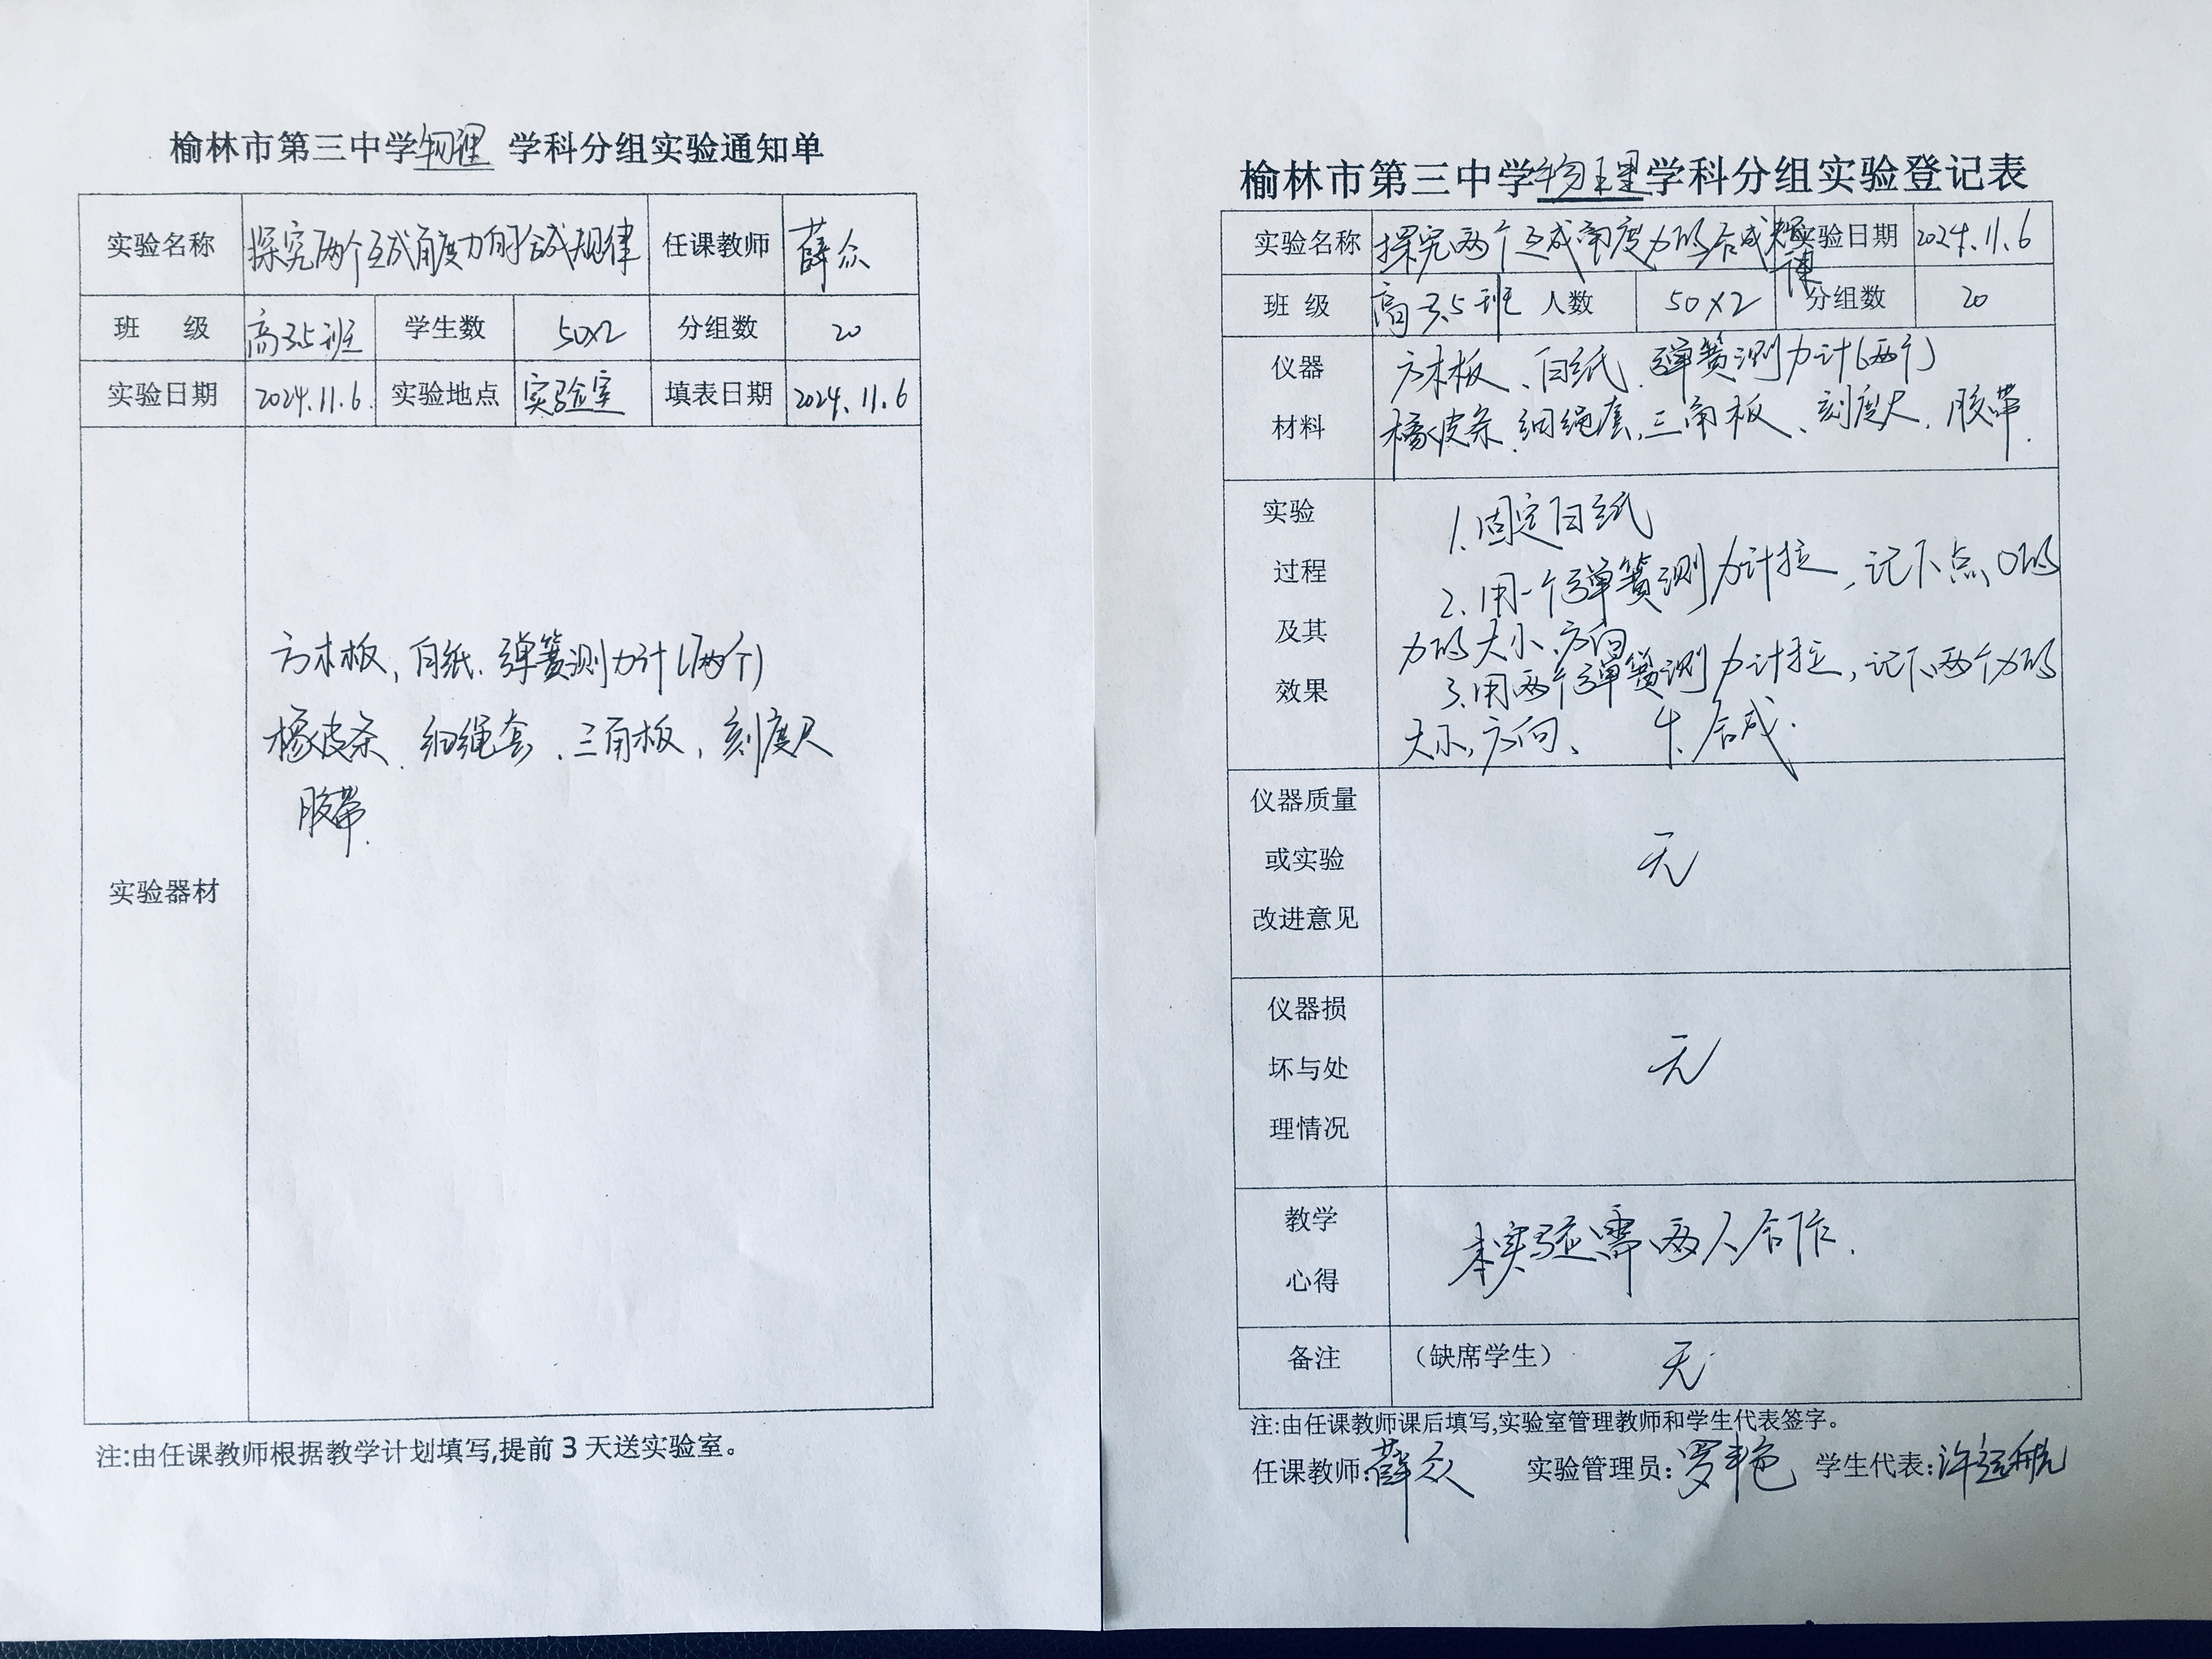 榆林市第三中学物理 学科分组实验通知单
实验名称 探究两个互成角度力的合成规律 任课教师 薛众
班 级 高3.5班 学生数 50×2 分组数 20
实验日期 2024.11.6. 实验地点 实验室 填表日期 2024.11.6
实验器材
方木板、白纸、弹簧测力计(两个)
橡皮条、细绳套、三角板、刻度尺
胶带.
注:由任课教师根据教学计划填写,提前 3 天送实验室。
榆林市第三中学物理学科分组实验登记表
实验名称 探究两个互成角度力的合成规律 实验日期 2024.11.6
班 级 高3.5班 人数 50×2 分组数 20
仪器
材料
方木板、白纸、弹簧测力计(两个)
橡皮条、细绳套、三角板、刻度尺、胶带.
实验
过程
及其
效果
1.固定白纸
2.用一个弹簧测力计拉,记下点O的
力的大小、方向
3.用两个弹簧测力计拉,记下两个力的
大小,方向、 4.合成.
仪器质量
或实验
改进意见
无
仪器损
坏与处
理情况
无
教学
心得
本实验需两人合作.
备注 (缺席学生) 无
注:由任课教师课后填写,实验室管理教师和学生代表签字。
任课教师:薛众 实验管理员:罗艳 学生代表:许远航